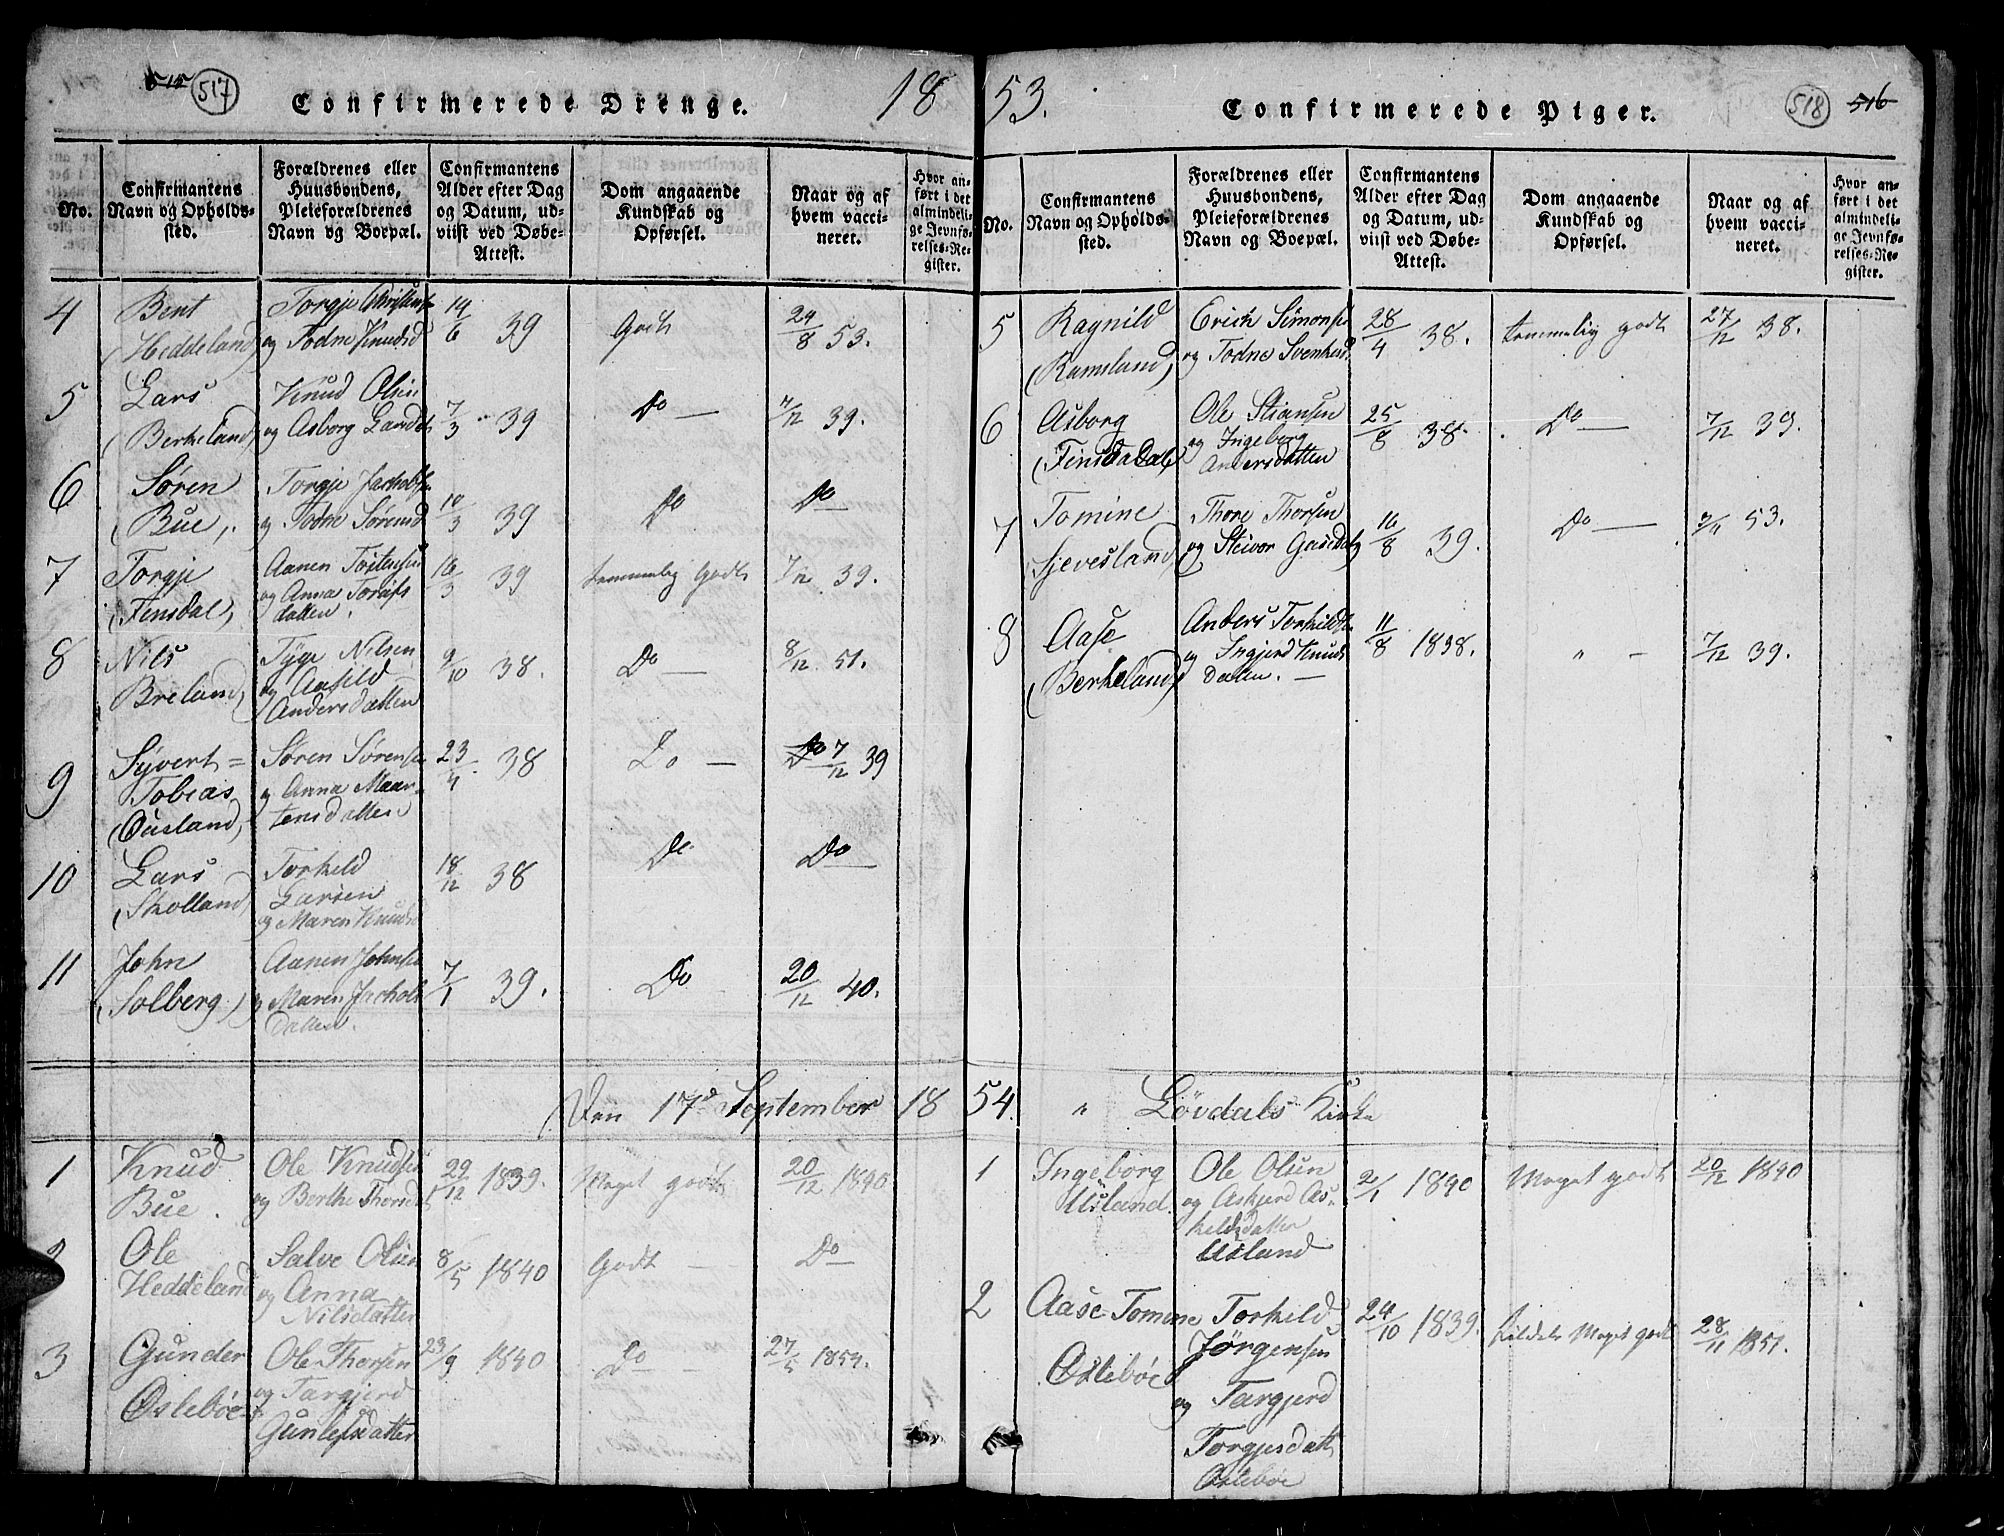 515 517
Confirmerede Drenge.
18
No.
Confirmantens Navn og Opholdssted.
Forældrenes eller Huusbondens, Pleieforældrenes Navn og Boepæl.
Confirmantens Alder efter Dag og Datum, udviist ved Døbe-Attest.
Dom angaaende Kundskab og Opførsel.
Naar og af hvem vaccineret.
Hvor anført i det almindelige Jevnførelses-Register.
4 Bent Torgje Christens 14/6 39 Godt 29/8 53.
(Heddeland) og Todne Knudsd
5 Lars Knud Olsen 7/3 39 Do — 7/12 39.
(Berkeland) og Asborg Larsd
6 Søren Torgje Jachobs 10/3 39 Do Do
(Bue). og Todne Sørensd
7 Torgje Aanen Tostensen 16/3 39 temmelig Godt 7/12 39.
(Finsdal) og Anna Torjus
datten.
8 Nils Tÿge Nilsen 9/10 38. Do — 8/12 51.
Breland) og Aasild
Andersdatten
9 Sÿvert = Søren Sørensen 23/4 38 Do — Do 7/12 39
Tobias og Anna Maar-
(Ousland) tensdatten
10 Lars Torkeld 18/12 38 Do Do
(Skolland) Larsen
og Maren Knuds
11 John Aanen Johnsen 7/1 39. Do 20/12 40.
(Solberg) og Maren Jachobs
Datten.
Den 17d September 18
1 Knud Ole Knudsen 29/12 1839. Meget godt 20/12 1840
Bue. og Berthe Thorsd
2 Ole Salve Olsen 8/5 1840 Godt — Do
Heddeland og Anna
Nilsdatter
3 Gunder Ole Thorsen 23/9 1840 Do — 27/5 1854.
Oslebøe og Targjerd
Gunlefsdatter
53.
Confirmerede Piger.
518 516
No.
Confirmantens Navn og Opholdssted.
Forældrenes eller Huusbondens, Pleieforældrenes Navn og Boepæl.
Confirmantens Alder efter Dag og Datum, udviist ved Døbe-Attest.
Dom angaaende Kundskab og Opførsel.
Naar og af hvem vaccineret.
Hvor anført i det almindelige Jevnførelses-Register.
5 Ragnild Erich Simonsen 28/4 38. temmelig godt 27/12 38.
(Ramsland) og Todne Svenksd
6 Asborg Ole Stiansen 25/8 38. Do — 7/12 39.
(Finsdadal) og Ingeborg
Andersdatten
7 Tomine Thore Thorsen 16/8 39. Do — 53.
Sjevesland og Steivor
8 Aase Anders Torkildsen 11/8 1838. " — 7/12 39.
(Berkeland) og Ingjerd Knuds
datten. —
54. " Løvdals Kirke
1 Ingeborg Ole Olsen 2/1 1840 Meget godt 20/12 1840
Usland. og Askjerd As-
keldsdatter
Usland
2 Aase Tomine Torkild 24/10 1839. Meget godt 28/11 1851.
Oslebøe Jørgensen
og Targjerd
Torgjersdatt
Oslebøe